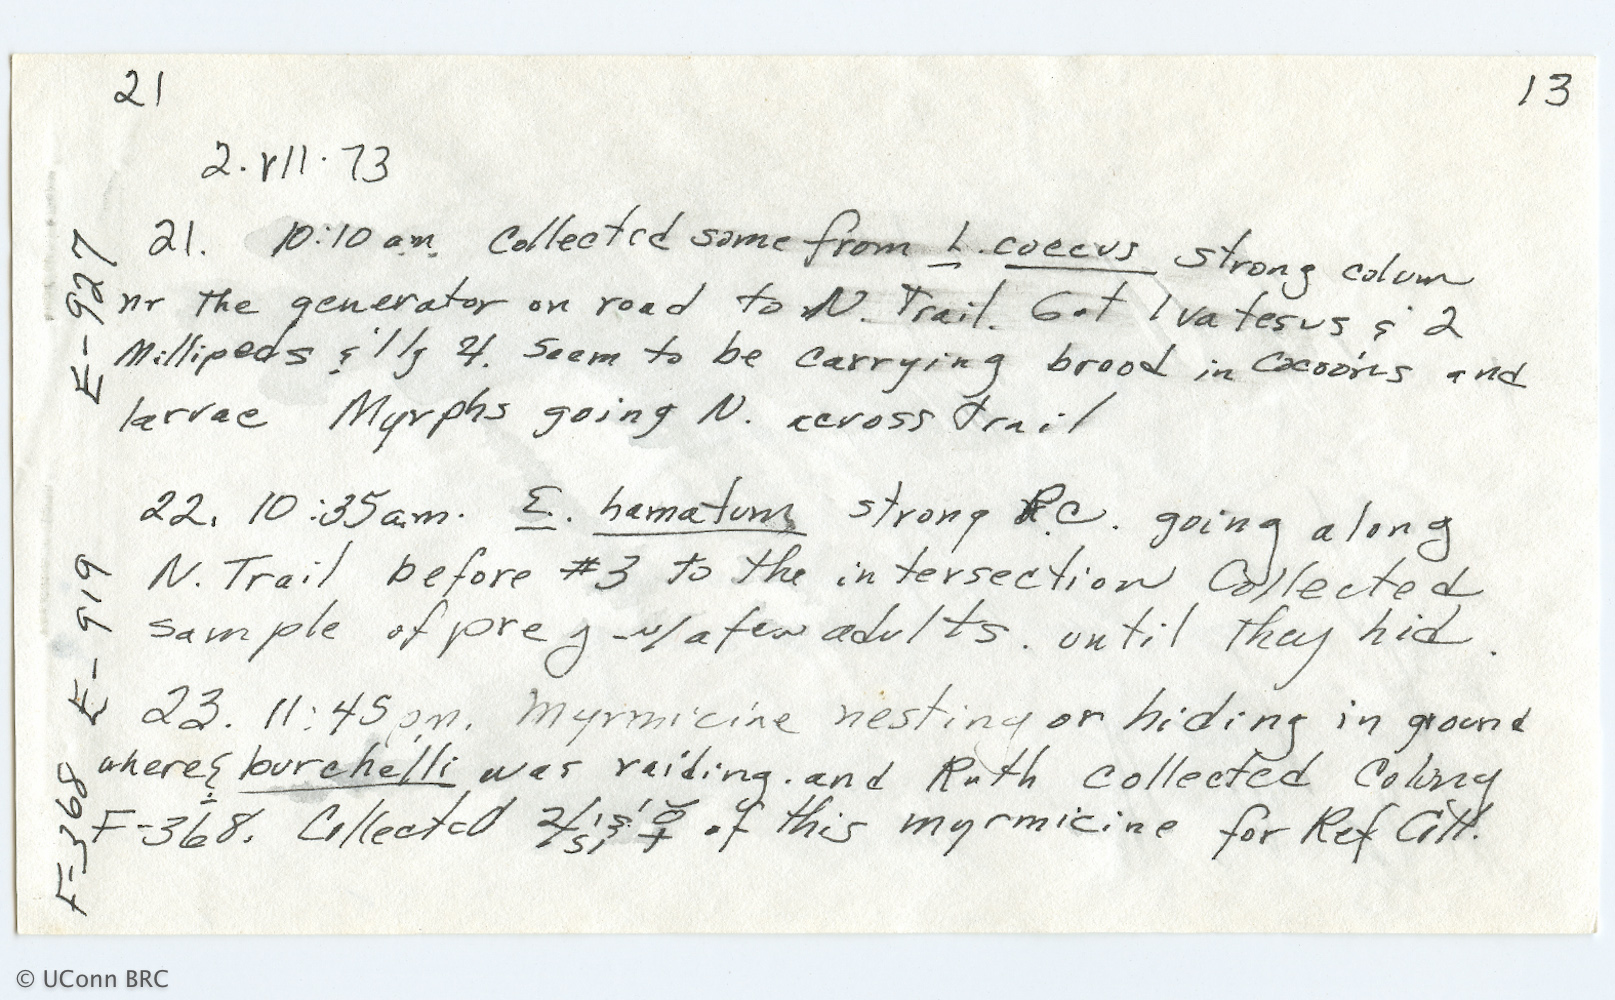 21 13
2.VII.73
E-927
21. 10:10 am. Collected some from L. coecus strong column
nr the generator on road to N. Trail. Got 1 vatesus & 2
Millipeds & 1 lg 4. Seem to be carrying brood in Cocoons and
larvae Myrphs going N. across Trail
E-919
22. 10:35am. E. hamatum strong R.C. going along
N. Trail before #3 to the intersection Collected
sample of prey w/a few adults. until they hid.
F-368
23. 11:45 pm. Myrmicine nesting or hiding in ground
where E burchelli was raiding. and Ruth collected Colony
F-368. Collected of this myrmicine for Ref Coll.
© UConn BRC